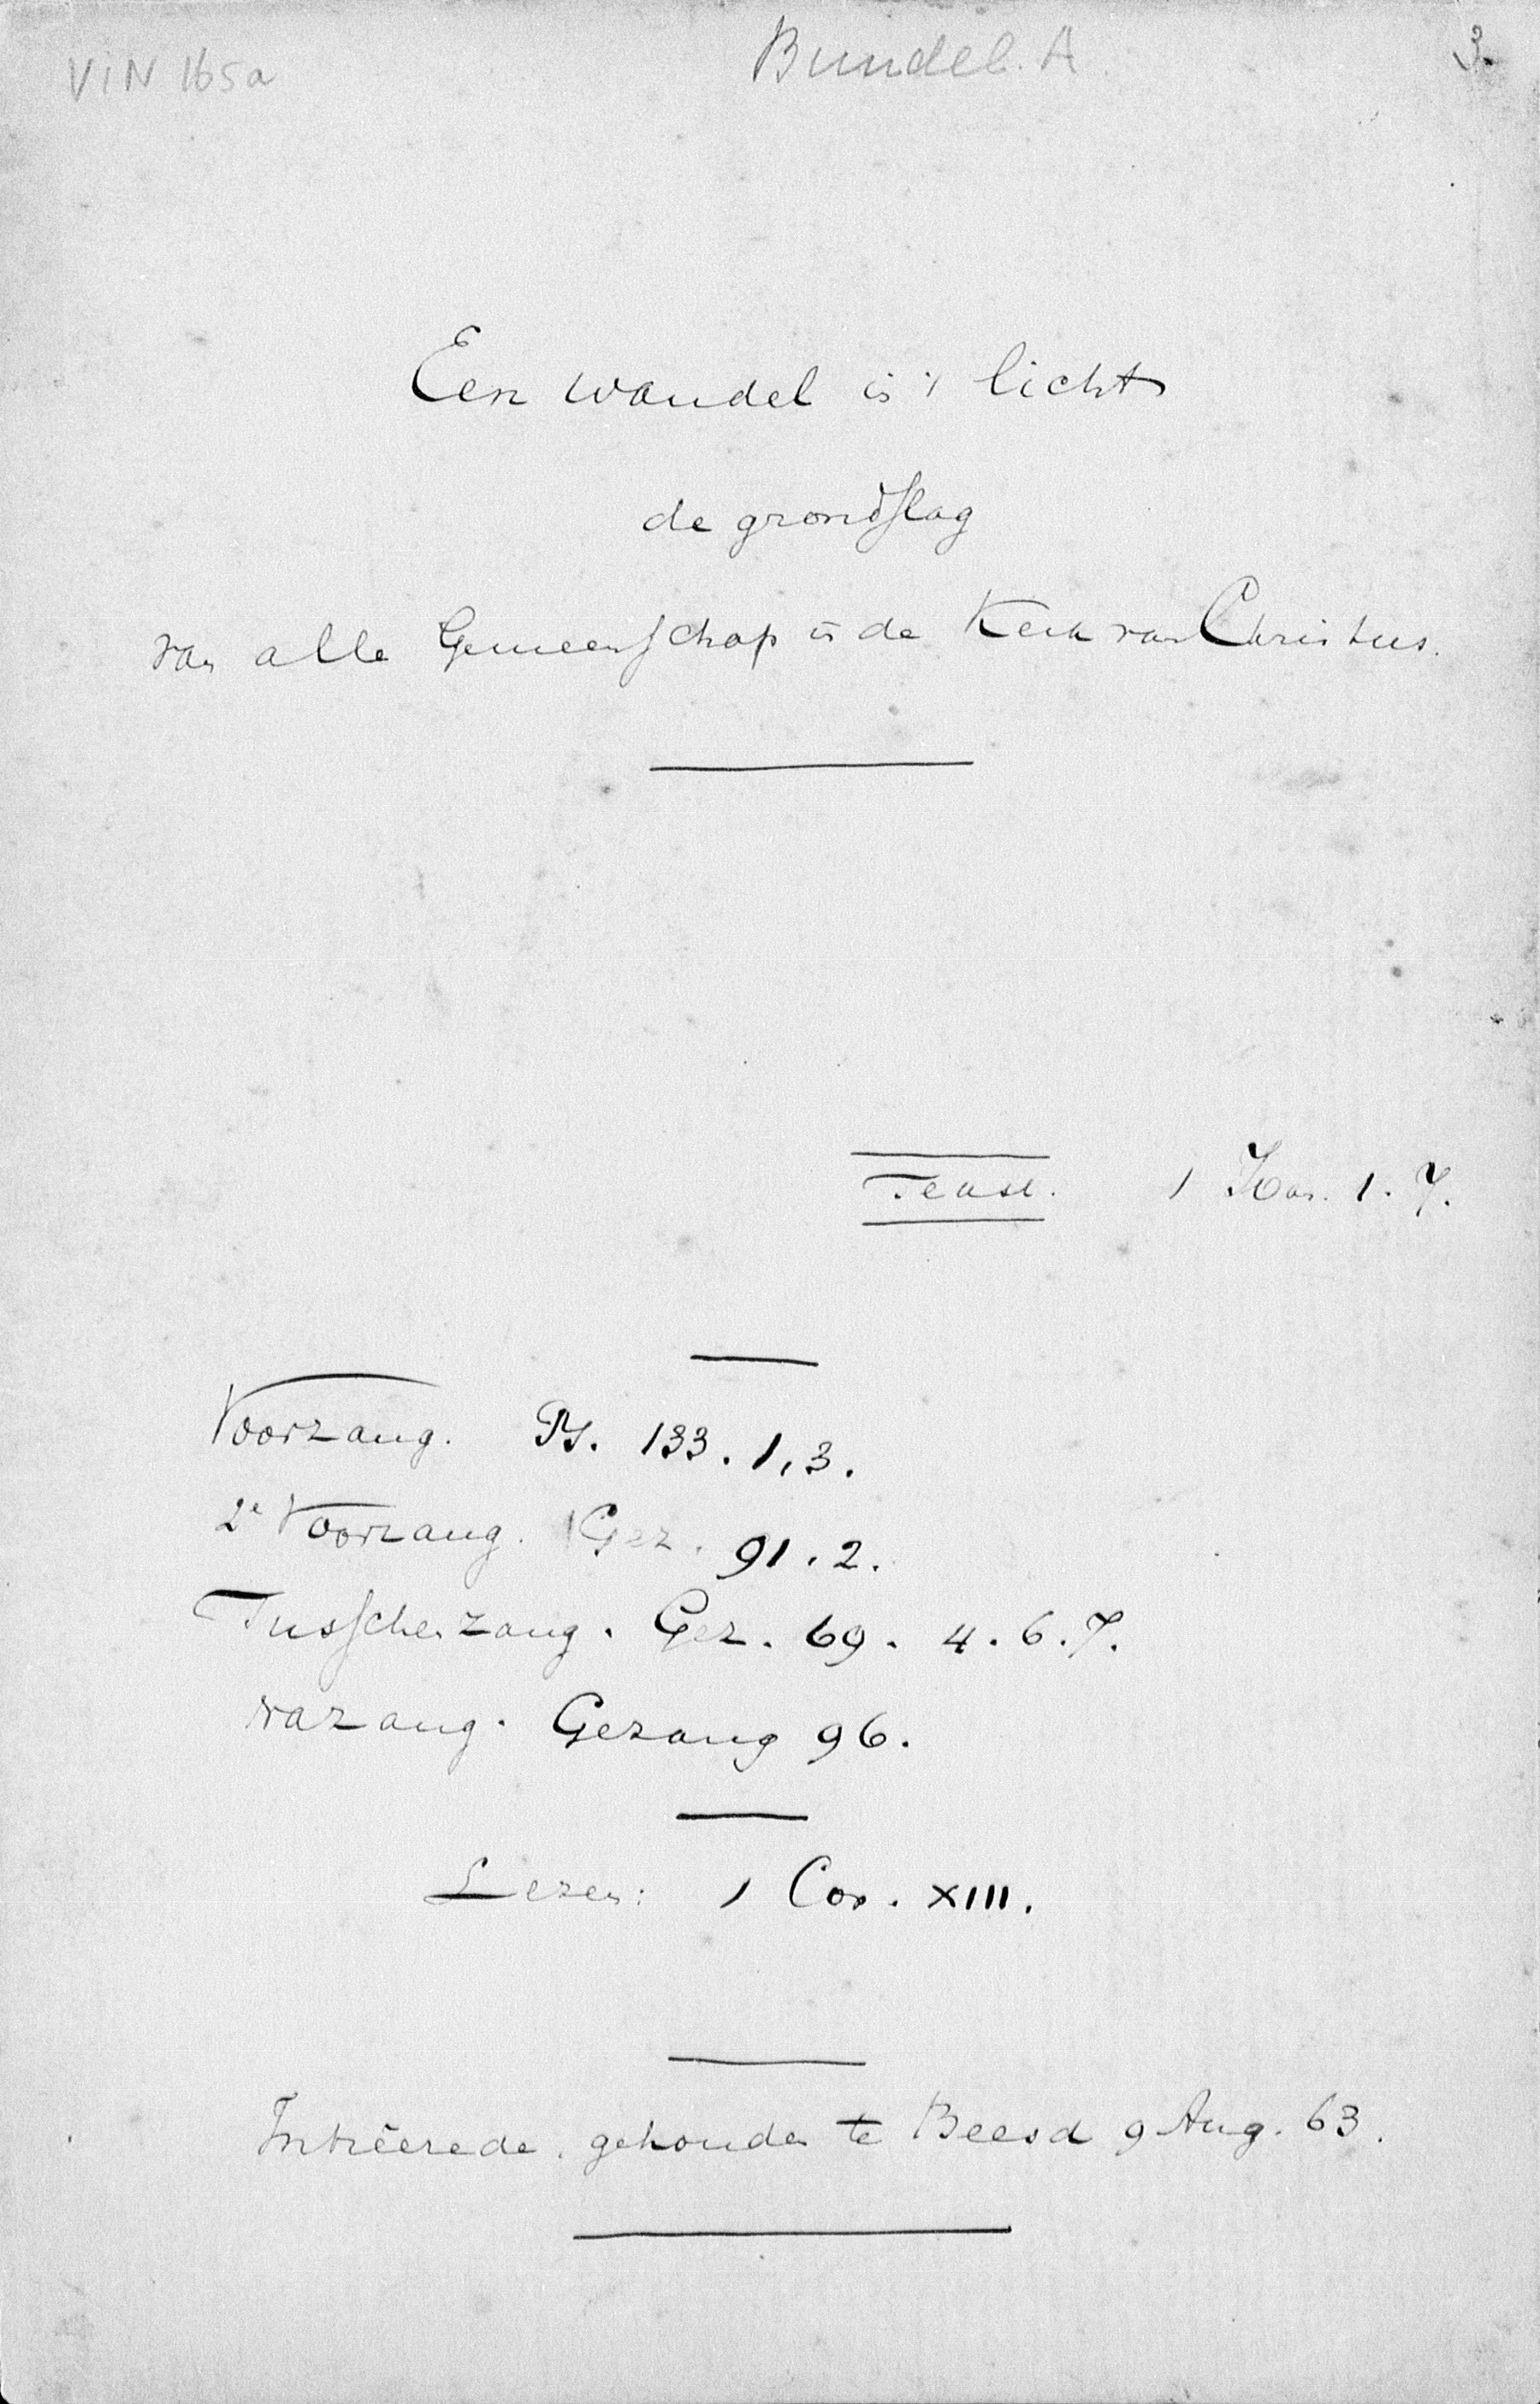 VIN 165a Bundel. A 3.
Een wandel in 't licht
de grondslag
van alle Gemeenschap in de Kerk van Christus.
Tekst. 1 Joh. 1. 7.
Voorzang. Ps. 133. 1, 3.
2e Voorzang. Gez. 91. 2.
Tusschenzang. Gez. 69. 4. 6. 7.
Nazang. Gezang 96.
Lezen: 1 Cor. XIII.
Intrêerede. gehouden te Beesd 9 Aug. 63.